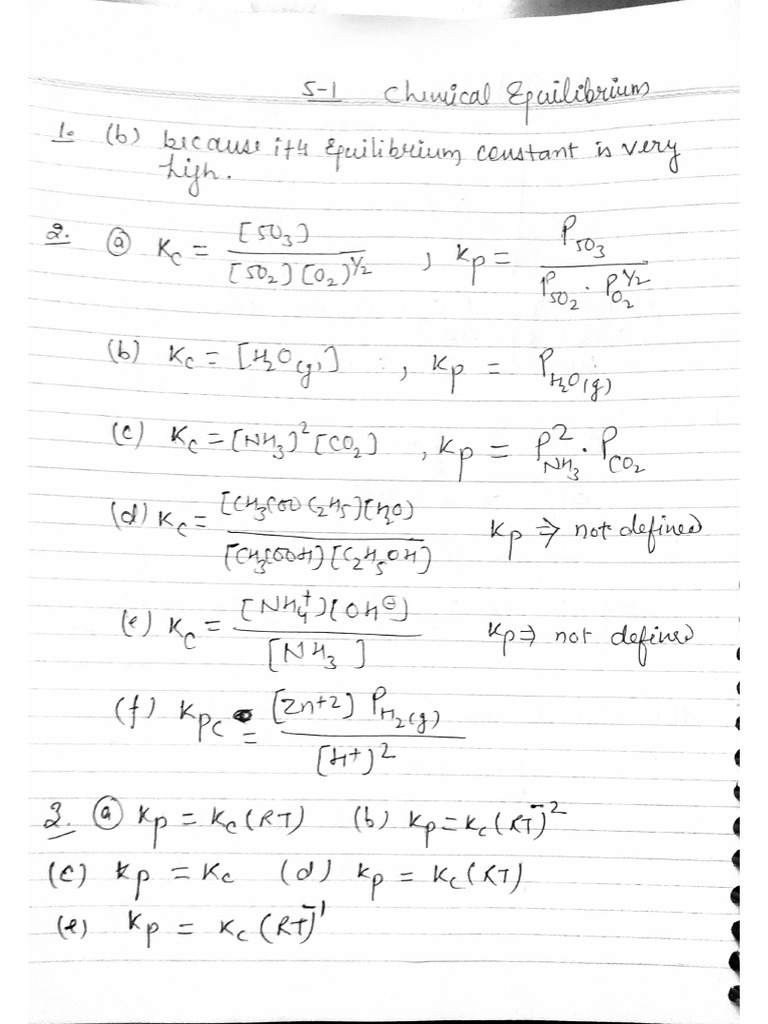 S-1 Chemical Equilibrium
1. (b) because it's Equilibrium constant is very
high.
2. (a) Kc = [SO3] / [SO2][O2]^1/2 , Kp = P_SO3 / P_SO2 · P_O2^1/2
(b) Kc = [H2O(g)] , Kp = P_H2O(g)
(c) Kc = [NH3]^2 [CO2] , Kp = P^2_NH3 · P_CO2
(d) Kc = [CH3COOC2H5][H2O] / [CH3COOH][C2H5OH] Kp ⇒ not defined
(e) Kc = [NH4+][OH⊖] / [NH3] Kp ⇒ not defined
(f) Kpc = [Zn+2] P_H2(g) / [H+]^2
3. (a) Kp = Kc(RT) (b) Kp = Kc(RT)^-2
(c) Kp = Kc (d) Kp = Kc(RT)
(e) Kp = Kc(RT)^-1